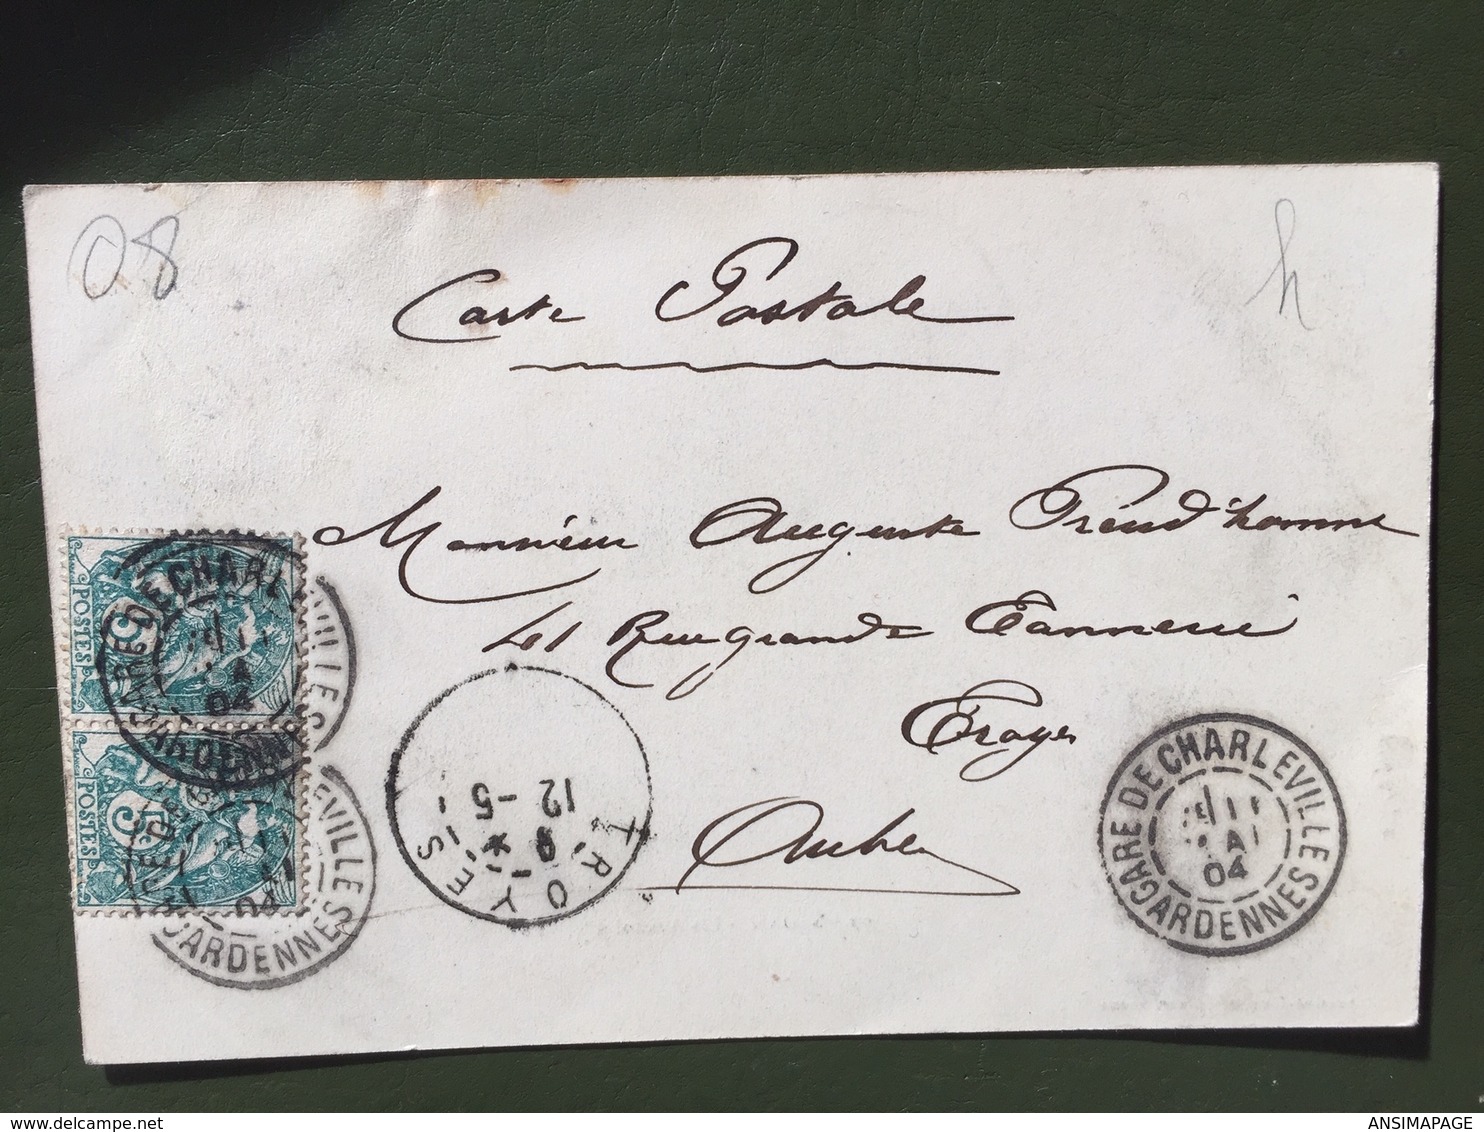 08
h
Carte Postale
Monsieur Auguste Preud'homme
41 Rue grande Tannerie
Troyes
Aube
POSTES
5c
POSTES
5c
GARE DE CHARLEVILLES
ARDENNES
04
GARE DE CHARLEVILLES
ARDENNES
04
TROYES
12 - 5
GARE DE CHARLEVILLES
ARDENNES
04
ANSIMAPAGE